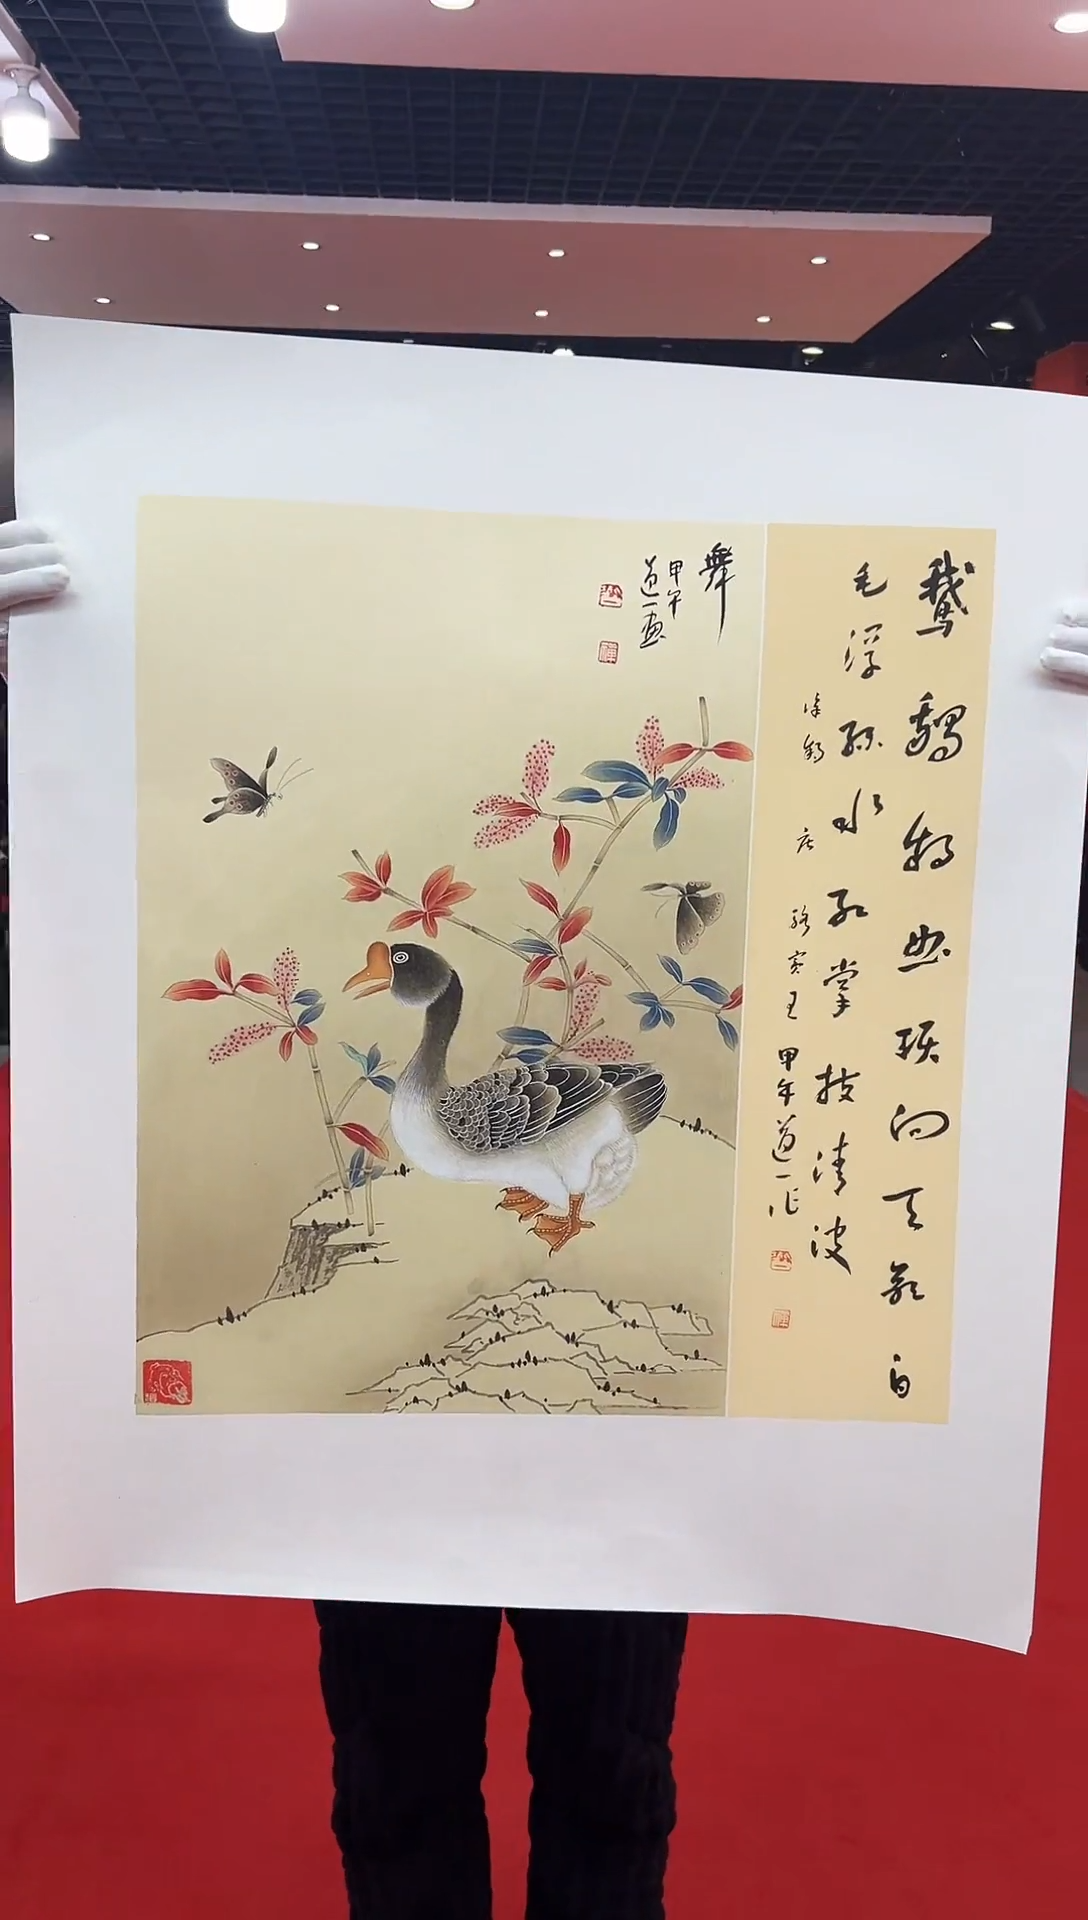 鹅鹅鹅曲项向天歌白
毛浮绿水红掌拨清波
咏鹅 唐 骆宾王 甲午道一作
舞
甲午
道一画